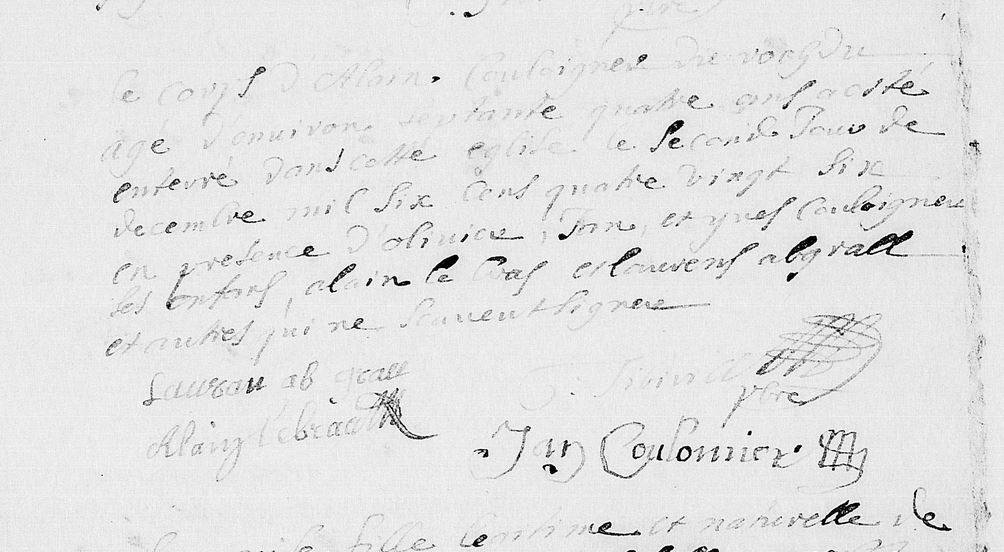 le corps d'Alain Couloigner du rochdu
âgé d'environ septante quatre ans a esté
enterré dans cette eglise le second Jour de
decembre mil six cens quatre vingt six
en presence d'olivier, Jan, et yves Couloigner
ses enfans, alain le bras et laurens abgrall
et autres qui ne scavent signer
Lauran ab grall
pbre
Jan Coulonnier
fille legitime et naturelle de